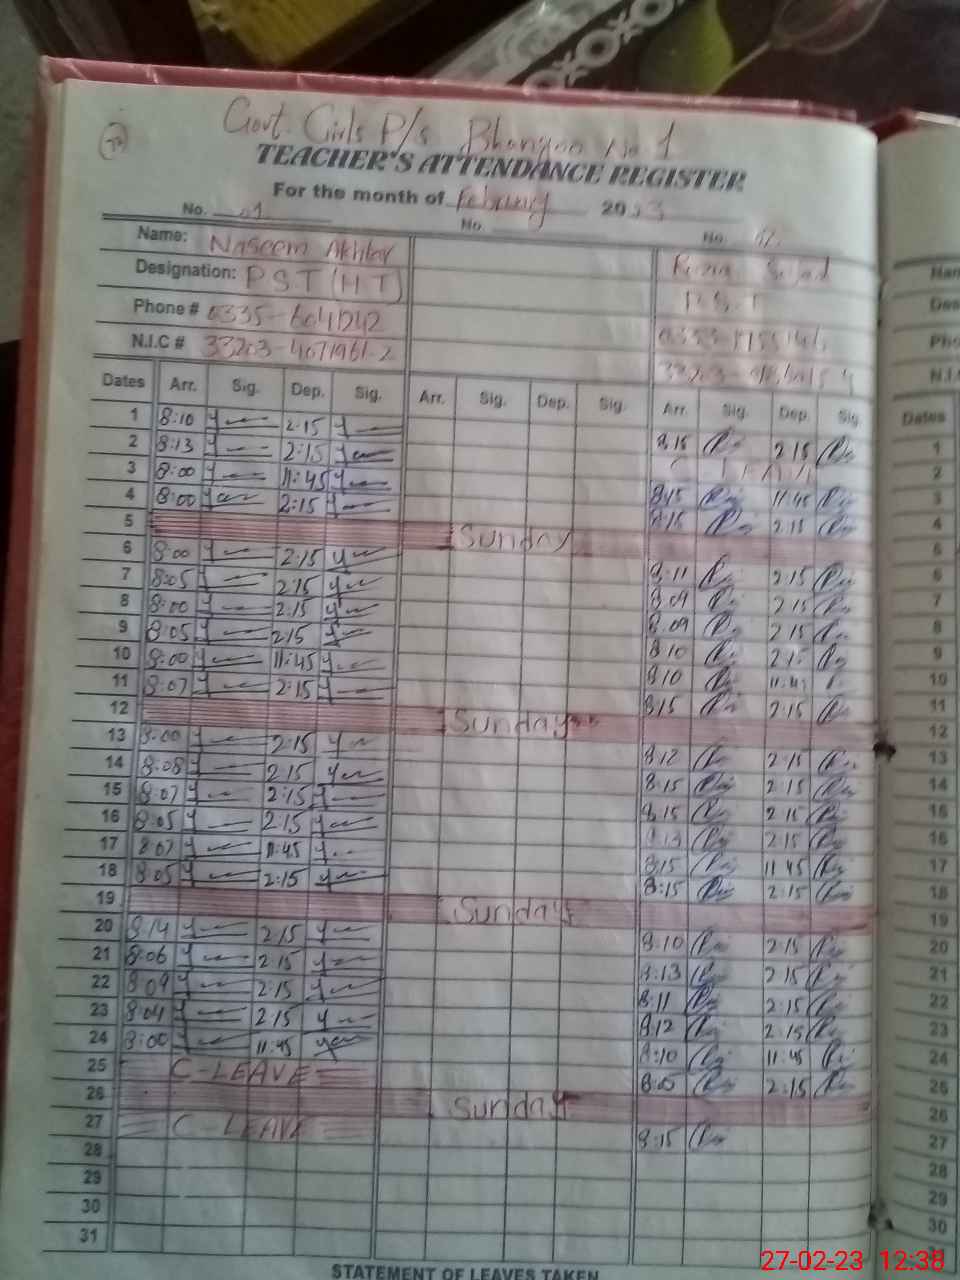 Govt. Girls P/s No 1
TEACHER'S ATTENDANCE REGISTER
For the month of February 2023
No. 01 No. No.
Name: Naseem Akhtar
Designation: P.S.T (H T) P.S.T
Phone #
N.I.C # 33203-4071961-2
Dates Arr. Sig. Dep. Sig. Arr. Sig. Dep. Sig. Arr. Sig. Dep. Sig. Dates
1 8:10 2:15 8:15 2:15 1
2 8:13 2:15 2
3 8:00 11:45 8:15 11:45 3
4 8:00 2:15 8:15 2:15 4
5 Sunday 5
6 8:00 2:15 8:11 2:15 6
7 8:05 2:15 8:09 2:15 7
8 8:00 2:15 8:09 2:15 8
9 8:05 2:15 8:10 2:15 9
10 8:00 11:45 8:10 11:45 10
11 8:07 2:15 8:15 2:15 11
12 Sunday 12
13 8:00 2:15 8:12 2:15 13
14 8:08 2:15 8:15 2:15 14
15 8:07 2:15 8:15 2:15 15
16 8:05 2:15 8:13 2:15 16
17 8:07 11:45 8:15 11:45 17
18 8:05 2:15 8:15 2:15 18
19 Sunday 19
20 8:14 2:15 8:10 2:15 20
21 8:06 2:15 8:13 2:15 21
22 8:09 2:15 8:11 2:15 22
23 8:04 2:15 8:12 2:15 23
24 8:00 11:45 8:10 11:45 24
25 C-LEAVE 8:05 2:15 25
26 Sunday 26
27 C-LEAVE 8:15 27
28 28
29 29
30 30
31
STATEMENT OF LEAVES TAKEN
27-02-23 12:38